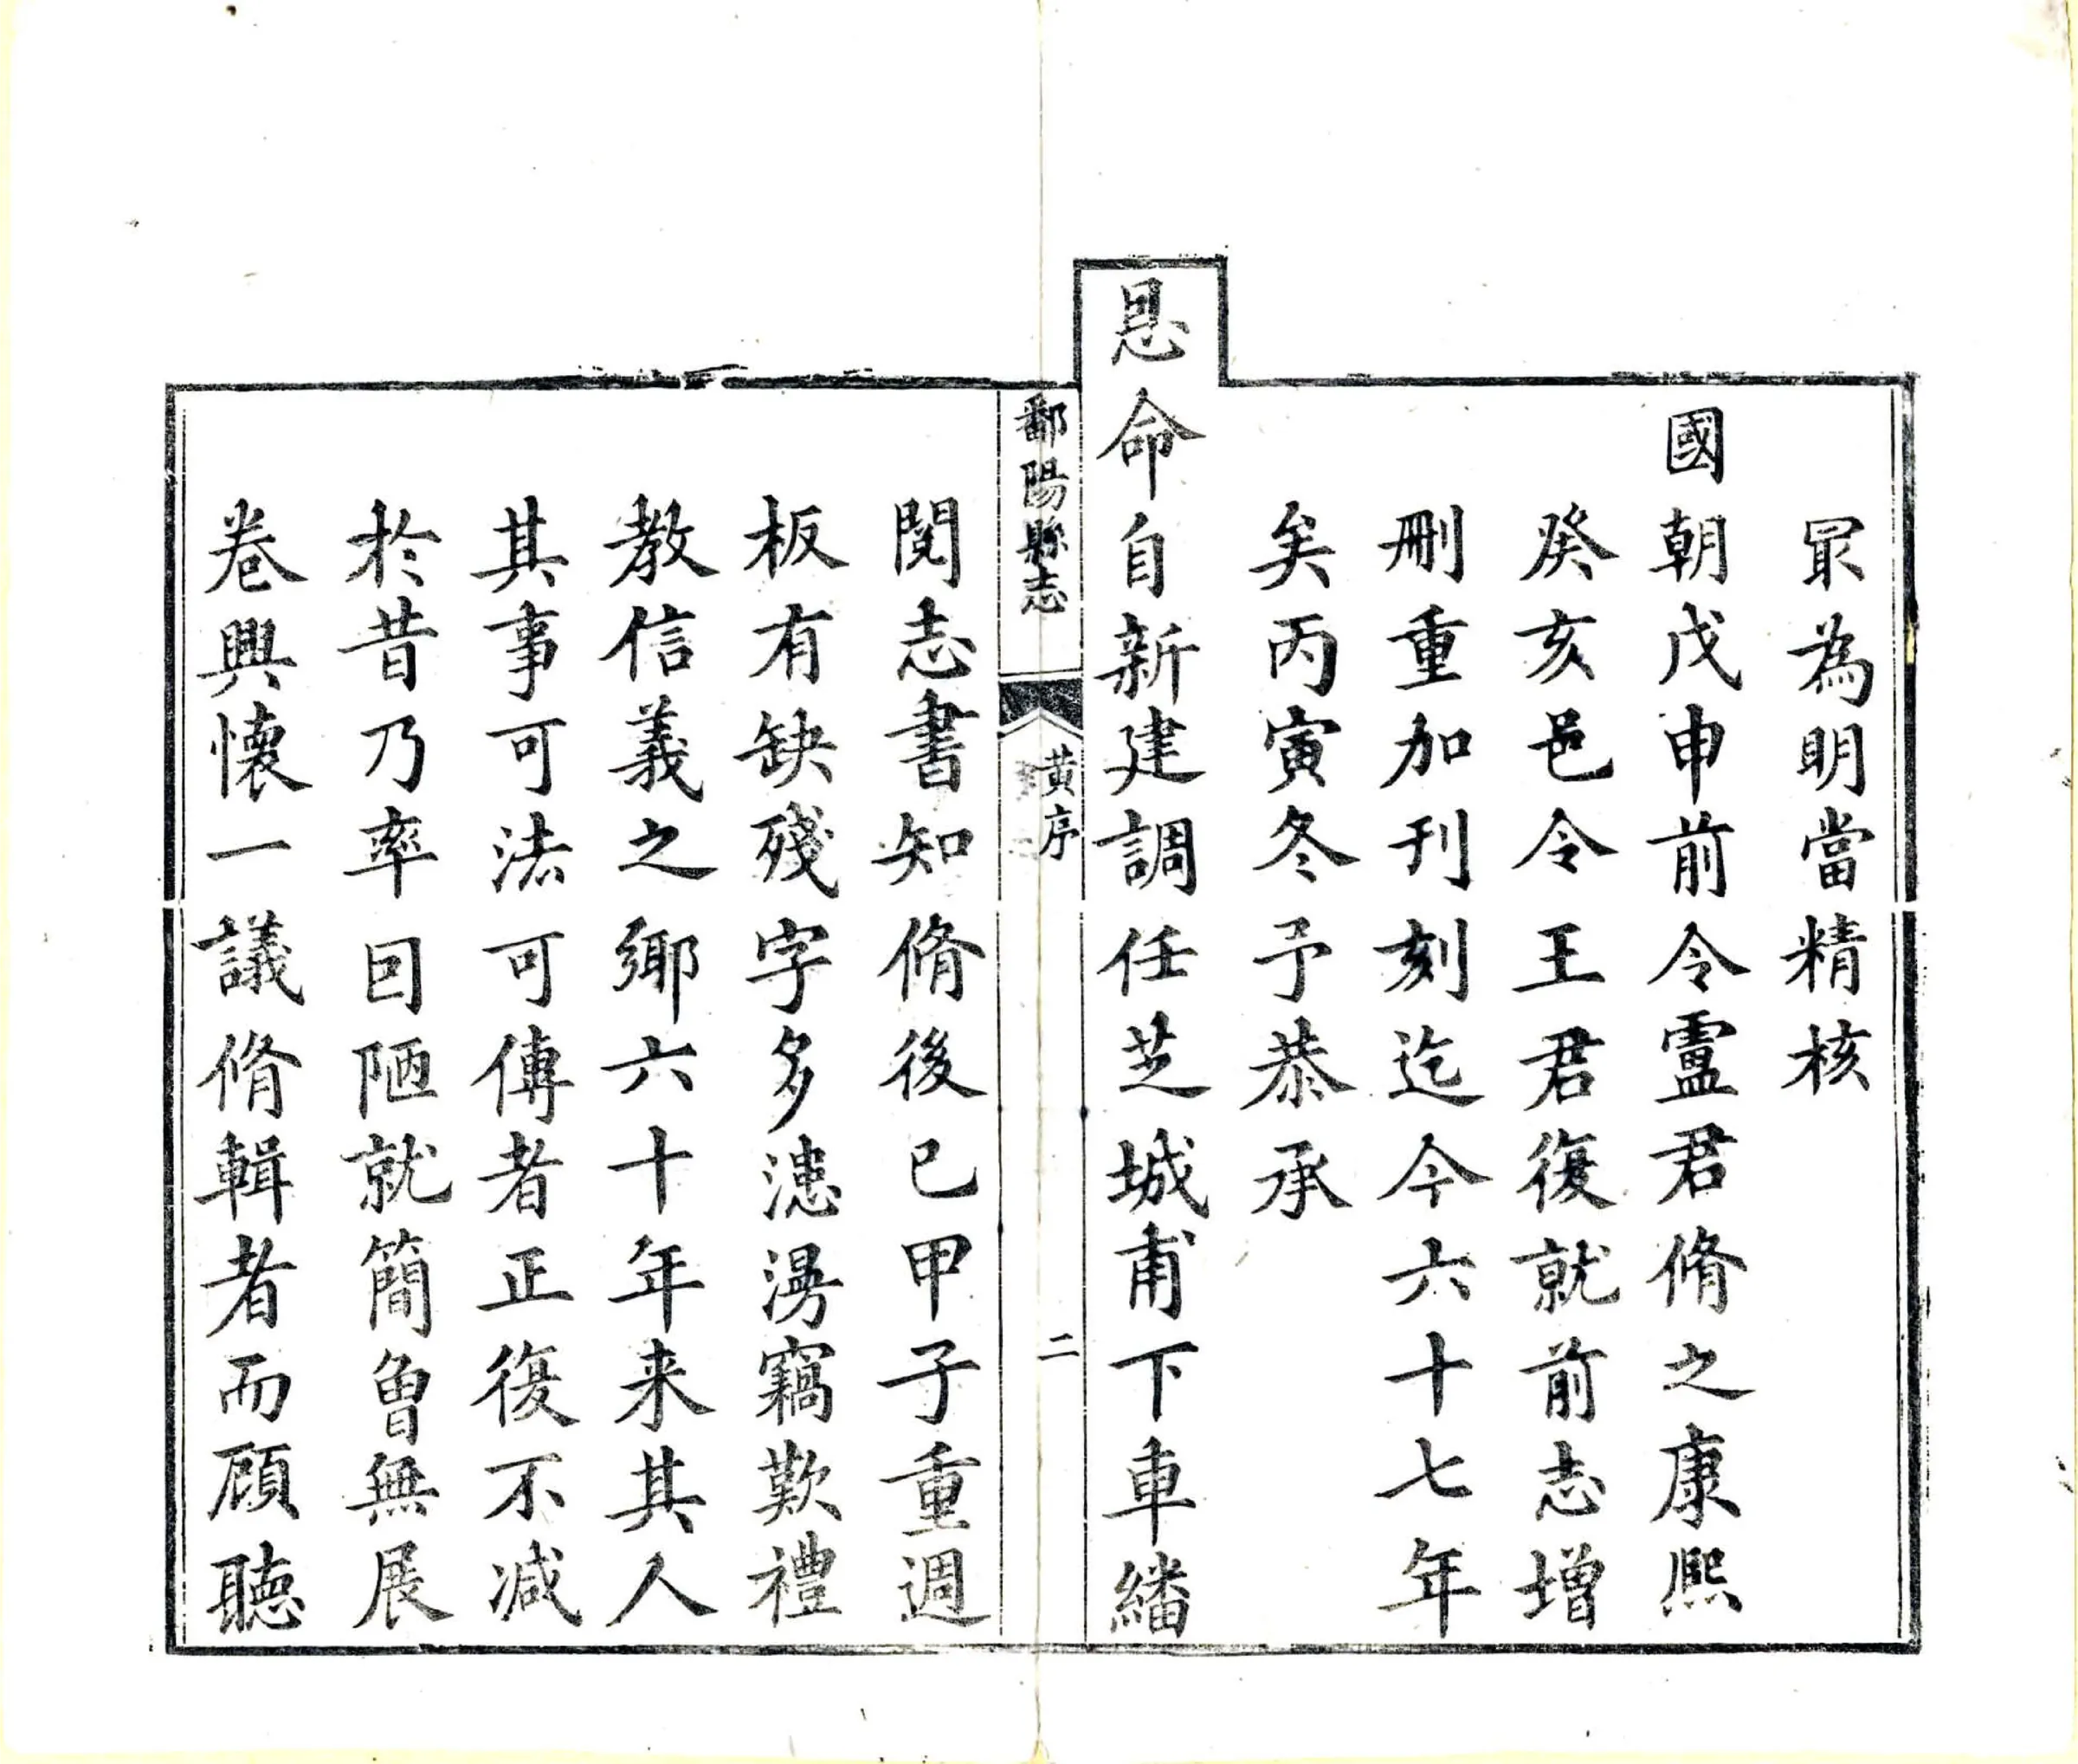 最為明當精核
國朝戊申前令盧君脩之康熙
癸亥邑令王君復就前志增
刪重加刊刻迄今六十七年
矣丙寅冬予恭承
恩命自新建調任芝城甫下車繙
鄱陽縣志
黃序
二
閱志書知脩後已甲子重週
板有缺殘字多漶漫竊歎禮
教信義之鄉六十年来其人
其事可法可傳者正復不減
於昔乃率因陋就簡曾無展
卷興懷一議脩輯者而顧聽